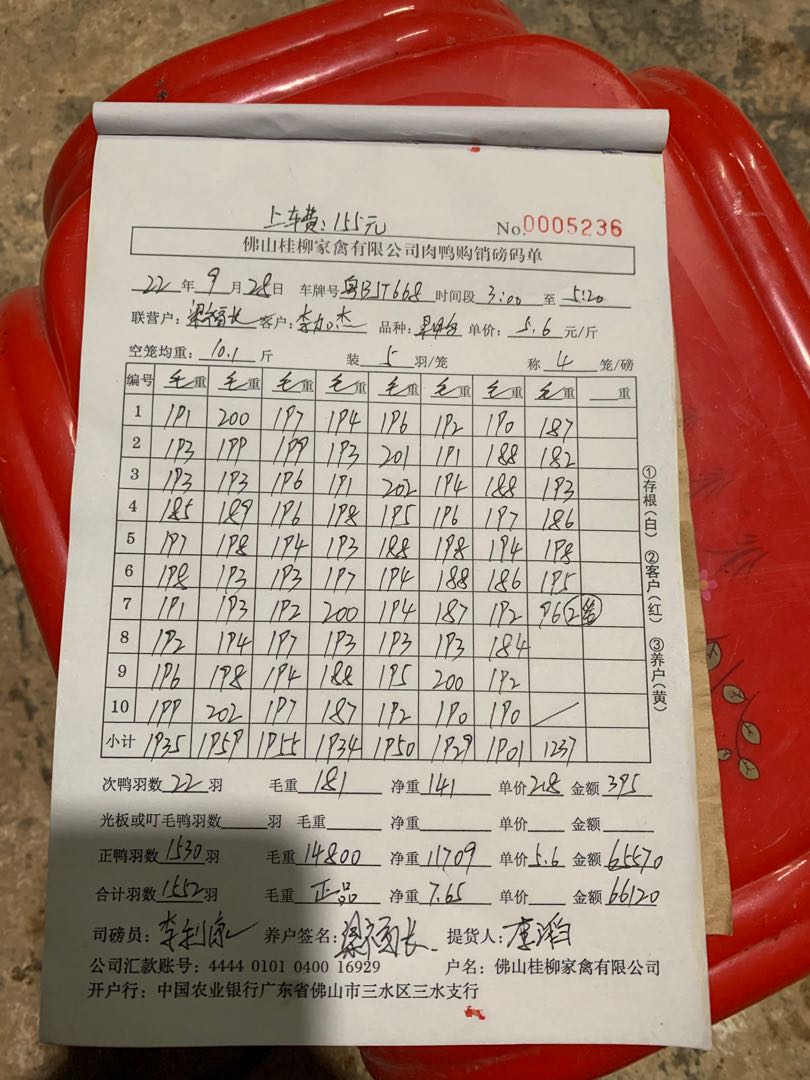 上车费:155元
No.0005236
佛山桂柳家禽有限公司肉鸭购销磅码单
22年9月28日 车牌号粤BJT668 时间段3:00至5:20
联营户:梁福长 客户:李加杰 品种: 单价:5.6元/斤
空笼均重:10.1斤 装5羽/笼 称4笼/磅
编号 毛重 毛重 毛重 毛重 毛重 毛重 毛重 毛重 重
1 191 200 197 194 196 192 190 187
2 193 199 199 193 201 191 188 182
3 193 193 196 191 202 194 188 193
4 185 189 196 198 195 196 197 186
5 197 198 194 193 188 198 194 198
6 198 193 193 197 194 188 186 195
7 191 193 192 200 194 187 192 96(2笼)
8 192 194 197 193 193 193 184
9 196 198 194 188 195 200 192
10 199 202 197 187 192 190 190 /
小计 1935 1959 1955 1934 1950 1929 1901 1237
①存根(白) ②客户(红) ③养户(黄)
次鸭羽数22羽 毛重181 净重141 单价2.8 金额395
光板或叮毛鸭羽数 羽 毛重 净重 单价 金额
正鸭羽数1530羽 毛重14800 净重11709 单价5.6 金额65570
合计羽数1552羽 毛重正品 净重7.65 单价 金额66120
司磅员: 养户签名:梁福长 提货人:
公司汇款账号:4444 0101 0400 16929 户名:佛山桂柳家禽有限公司
开户行:中国农业银行广东省佛山市三水区三水支行